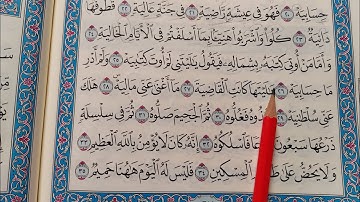 حِسَابِيَهْ ٢٠ فَهُوَ فِي عِيشَةٍ رَّاضِيَةٍ ٢١ فِي جَنَّةٍ عَالِيَةٍ ٢٢ قُطُوفُهَا
دَانِيَةٌ ٢٣ كُلُوا۟ وَٱشْرَبُوا۟ هَنِيٓـَٔۢا بِمَآ أَسْلَفْتُمْ فِي ٱلْأَيَّامِ ٱلْخَالِيَةِ ٢٤
وَأَمَّا مَنْ أُوتِيَ كِتَٰبَهُۥ بِشِمَالِهِۦ فَيَقُولُ يَٰلَيْتَنِي لَمْ أُوتَ كِتَٰبِيَهْ ٢٥ وَلَمْ أَدْرِ
مَا حِسَابِيَهْ ٢٦ يَٰلَيْتَهَا كَانَتِ ٱلْقَاضِيَةَ ٢٧ مَآ أَغْنَىٰ عَنِّي مَالِيَهْ ۜ ٢٨ هَلَكَ
عَنِّي سُلْطَٰنِيَهْ ٢٩ خُذُوهُ فَغُلُّوهُ ٣٠ ثُمَّ ٱلْجَحِيمَ صَلُّوهُ ٣١ ثُمَّ فِي سِلْسِلَةٍ
ذَرْعُهَا سَبْعُونَ ذِرَاعًا فَٱسْلُكُوهُ ٣٢ إِنَّهُۥ كَانَ لَا يُؤْمِنُ بِٱللَّهِ ٱلْعَظِيمِ ٣٣
وَلَا يَحُضُّ عَلَىٰ طَعَامِ ٱلْمِسْكِينِ ٣٤ فَلَيْسَ لَهُ ٱلْيَوْمَ هَٰهُنَا حَمِيمٌ ٣٥